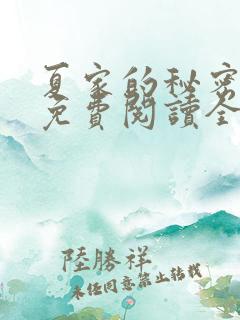 夏家的秘密
免費閱讀全
陸勝祥
未经同意禁止转载